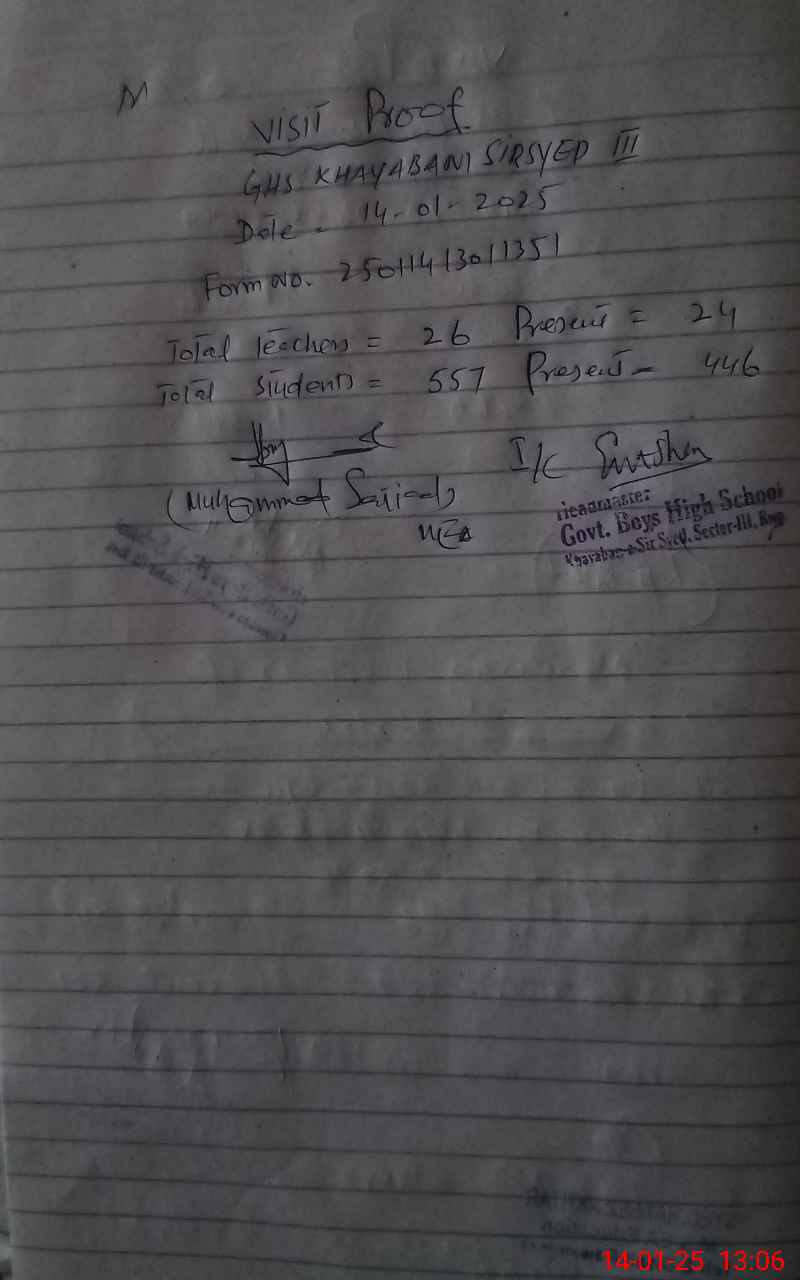 M
VISIT Proof
GHS KHAYABANI SIRSYED III
Date - 14-01-2025
Form No. 25011413011351
Total Teachers = 26 Present = 24
Total Students = 557 Present = 446
(Muhammad
MEA
I/C
Headmaster
Govt. Boys High School
Khayaban-e-Sir Syed, Sector-III, Rwp
14-01-25 13:06